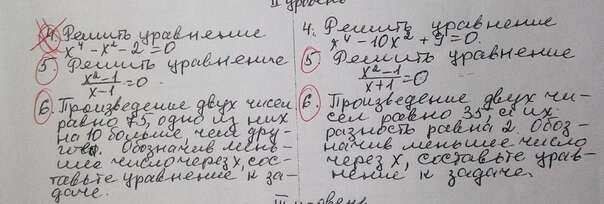 II уровень
4. Решить уравнение
x⁴ - x² - 2 = 0
5. Решить уравнение
x² - 1 / x - 1 = 0.
6. Произведение двух чисел
равно 75, одно из них
на 10 больше, чем дру-
гое. Обозначив мень-
шее число через x, сос-
тавьте уравнение к за-
даче.
4. Решить уравнение
x⁴ - 10x² + 9 = 0.
5. Решить уравнение
x² - 1 / x + 1 = 0
6. Произведение двух чи-
сел равно 35, а их
разность равна 2. Обоз-
начив меньшее число
через x, составьте урав-
нение к задаче.
III уровень